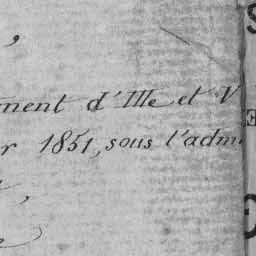 ,
ment d'Ille et V
r 1851, sous l'adm
,